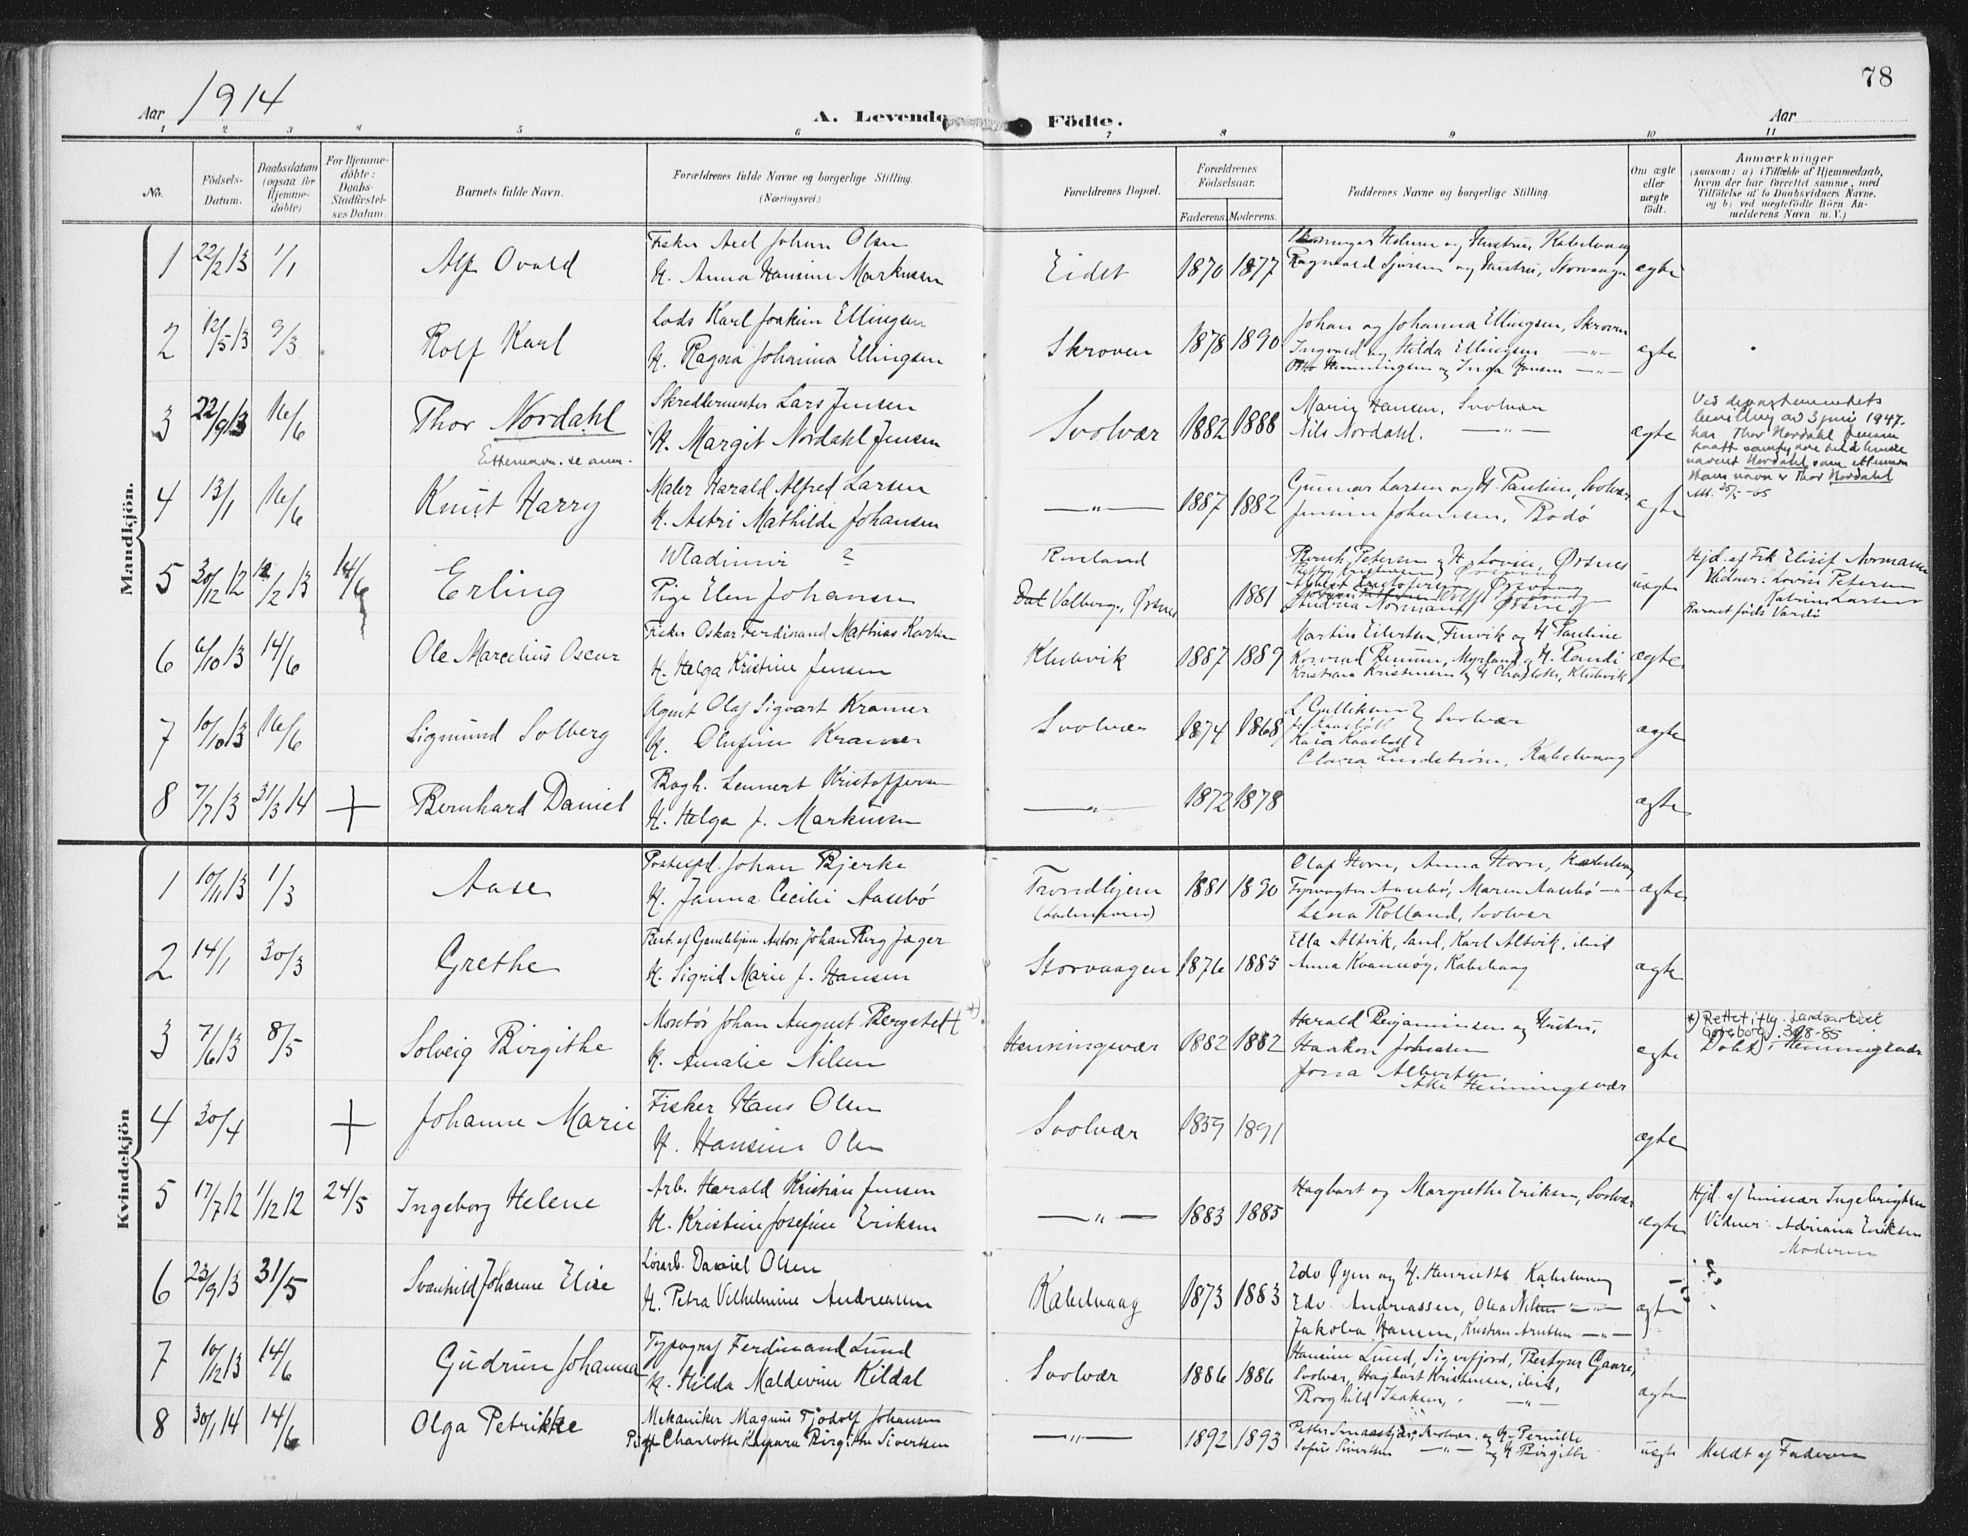 78
Aar 1914
A. Levende Födte.
Aar
1 2 3 4 5 6 7 8 9 10 11
No.
Födsels-Datum.
Daabsdatum (ogsaa for Hjemme-döbte)
For Hjemme-döbte: Daabs-Stadfæstel-ses Datum.
Barnets fulde Navn.
Forældrenes fulde Navne og borgerlige Stilling. (Næringsvei.)
Forældrenes Bopæl.
Forældrenes Födselsaar.
Faderens. Moderens.
Faddernes Navne og borgerlige Stilling.
Om ægte eller uægte födt.
Anmærkninger
(saasom: a) i Tilfælde af Hjemmedaab, hvem der har forrettet samme, med Tilföielse af to Daabsvidners Navne, og b) ved uægtefödte Börn An-melderens Navn m. V.)
Mandkjön.
1 22/2 13 1/1 Alf Ovald
Fisker Axel Johan Olsen
H. Anna Hansine Markussen
Eidet 1870 1877
Holmen og Hustru, Kabelvaag
Ragnvald Sjursen og Hustru, Storvaagen
ægte
2 12/5 13 9/3 Rolf Karl
Lods Karl Joakim Ellingsen
H. Ragna Johanna Ellingsen
Skroven 1878 1890
Johan og Johanna Ellingsen, Skroven
Ingvald og Hilda Ellingsen —"—
Otto Henningsen og Inga Hansen —"—
ægte
3 22/9 13 16/6 Thor Nordahl
Etternavn. se anm.
Skreddermester Lars Jensen
H. Margit Nordahl Jensen
Svolvær 1882 1888
Marie Hansen, Svolvær
Nils Nordahl. —"—
ægte
Ved departementets
bevilling av 3 juni 1947.
har Thor Nordahl Jensen
navnet Nordahl som etternavn
Hans navn er Thor Nordahl
4 13/1 16/6 Knut Harry
Maler Harald Alfred Larsen
H. Astri Mathilde Johansen
—"— 1887 1882
Gunnar Larsen og H. Pauline, Svolvær
Jensine Johansen, Bodø
ægte
5 30/12 12 12/2 13 14/6 Erling
Wladimir ?
Pige Elen Johansen
Rusland
Valberg, Ørsnes 1881
Petersen og H. Lovise, Ørsnes
Andrea Normann, Ørsnes
uægte
Hjd. af Frk Elisef Normann
Vidner: Lovise Petersen
Katrine Larsen
Barnet föds Vardö
6 6/10 13 14/6 Ole Marcelius Oscar
Fisker Oskar Ferdinand Mathias Karlsen
H. Helga Kristine Jensen
Klubvik 1887 1889
Martin Eilertsen, Finvik og H. Pauline
Konrad Benum, Myrland og H. Randi
Kristian Kristensen og H Charlotte, Klubvik
ægte
7 10/10 13 16/6 Sigmund Solberg
Agent Olaf Sigvart Kramer
H. Olufine Kramer
Svolvær 1874 1868
L Gulliksen
Svolvær
Clara Lindström, Kabelvaag
ægte
8 7/7 13 31/3 14 + Bernhard Daniel
Bogh. Lennert Kristoffersen
H. Helga f. Markussen
—"— 1872 1878
ægte
Kvindekjön
1 10/11 13 1/3 Aase
Postexpd. Johan Bjerke
H. Janna Cecilie Aasebö
Trondhjem 1881 1890
Olaf Horn, Anna Horn, Kabelvaag
Fyrvogter Aasebö, Maren Aasebö —"—
Lena Rolland, Svolvær
ægte
2 14/1 30/3 Grethe
Best. af Gamlehjem Anton Johan Berg Jæger
H. Sigrid Marie f. Hansen
Storvaagen 1876 1885
Ella Alsvik, Sand, Karl Alsvik, ibid
Anna Kvannöy, Kabelvaag
ægte
3 7/6 13 8/5 Solveig Birgithe
Montör Johan August Bergstett *)
H. Amalie Nilsen
Henningsvær 1882 1882
Harald Benjaminsen og Hustru,
Haakon Johnsen
Jona Albertsen
Alle Henningsvær
ægte
*) Rettet iflg. Landsarkivet
Göteborg. 30/8-85
Döbt i Henningsvær
4 30/4 + Johanne Marie
Fisker Hans Olsen
H. Hansine Olsen
Svolvær 1859 1891
ægte
5 17/7 12 1/12 12 24/5 Ingeborg Helene
Arb. Harald Kristian Jensen
H. Kristine Josefine Eriksen
—"— 1883 1885
Hagbart og Margrethe Eriksen, Svolvær
ægte
Hjd. af Emissær Ingebrigtsen
Vidner: Adriana Eriksen
Moderen
6 23/9 13 31/5 Svanhild Johanne Elise
Lösarb. Daniel Olsen
H. Petra Vilhelmine Andreassen
Kabelvaag 1873 1883
Edv Öyen og H. Henriette, Kabelvaag
Edv. Andreassen, Olea Nilsen —"—
Jakoba Hansen, Kristian Arntsen —"—
ægte
7 10/12 13 14/6 Gudrun Johanna
Typograf Ferdinand Lund
H. Hilda Maldevine Kildal
Svolvær 1886 1886
Hansine Lund, Sigerfjord, Bestyrer Gaare,
Svolvær, Hagbart Kristensen, ibid,
Borghild Isaksen, —"—
ægte
8 30/1 14 14/6 Olga Petrikke
Mekaniker Magnus Tjodolf Johansen
Pige Charlotte Kaspara Birgitte Sivertsen
—"— 1892 1893
Svolvær, og H. Pernille
Sofus Sivertsen —"— og H Birgitte
uægte
Meldt af Faderen